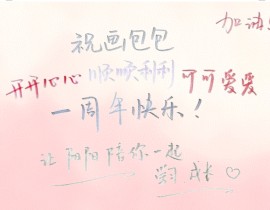 加油!
祝画包包
开开心心 顺顺利利 可可爱爱
一周年快乐!
让阳阳陪你一起
学习 成长♡